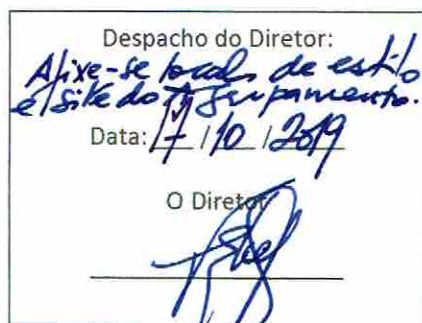 Despacho do Diretor:
Afixe-se locais de estilo
e site do Agrupamento.
Data: 17/10/2019
O Diretor